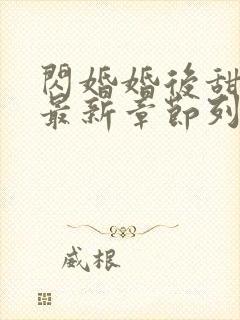 閃婚婚後甜
最新章節列
威根